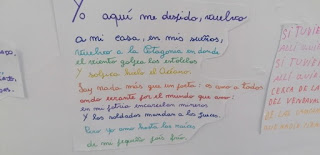 Yo aquí me despido, vuelvo
a mi casa, en mis sueños,
vuelvo a la Patagonia en donde
el viento golpea los establos
Y salpica hielo el Océano.
Soy nada más que un poeta: os amo a todos
ando errante por el mundo que amo:
en mi patria encarcelan mineros
Y los soldados mandan a los jueces.
Pero yo amo hasta las raíces
de mi pequeño país frío.
SI TUVIE
ALLÍ
SI TUVIE
ALLÍ QUIE
CERCA DE LA
DEL VENDAVAL